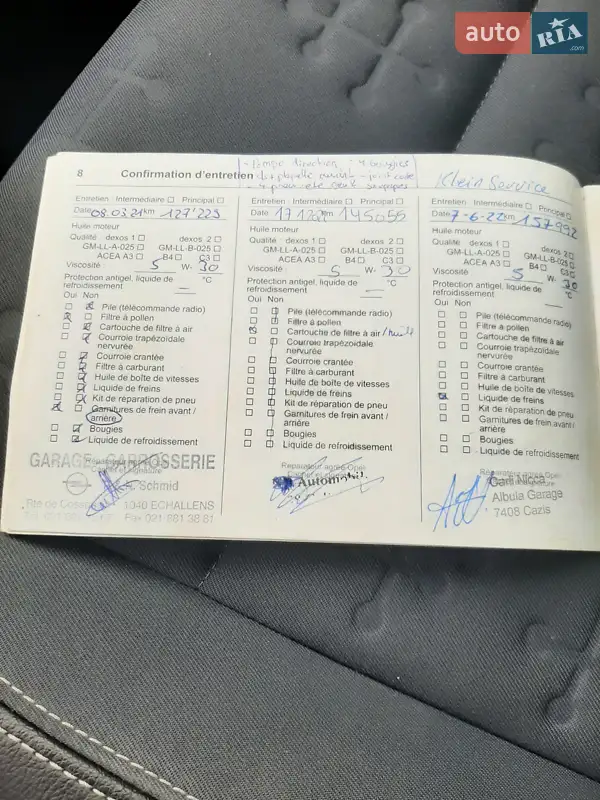 auto RIA .com
- Pompe direction : 4 bougies
8 Confirmation d'entretien
Klein Service
Entretien Intermédiaire Principal
Date 08.03.21 km 127'225
Huile moteur
Qualité dexos 1 dexos 2
GM-LL-A-025 GM-LL-B-025
ACEA A3 B4 C3
Viscosité 5 W- 30
Protection antigel, liquide de refroidissement — °C
Oui Non
Pile (télécommande radio)
Filtre à pollen
Cartouche de filtre à air
Courroie trapézoïdale
nervurée
Courroie crantée
Filtre à carburant
Huile de boîte de vitesses
Liquide de freins
Kit de réparation de pneu
Garnitures de frein avant /
arrière
Bougies
Liquide de refroidissement
Réparateur agréé Opel
GARAGE - CARROSSERIE
Schmid
1040 ECHALLENS
Fax 021 881 38 81
Entretien Intermédiaire Principal
Date km 145055
Huile moteur
Qualité dexos 1 dexos 2
GM-LL-A-025 GM-LL-B-025
ACEA A3 B4 C3
Viscosité 5 W- 30
Protection antigel, liquide de
refroidissement — °C
Oui Non
Pile (télécommande radio)
Filtre à pollen
Cartouche de filtre à air / huile
Courroie trapézoïdale
nervurée
Courroie crantée
Filtre à carburant
Huile de boîte de vitesses
Liquide de freins
Kit de réparation de pneu
Garnitures de frein avant /
arrière
Bougies
Liquide de refroidissement
Réparateur agréé Opel
Automobil
Entretien Intermédiaire Principal
Date 7-6-22 km 157992
Huile moteur
Qualité dexos 1 dexos 2
GM-LL-A-025 GM-LL-B-025
ACEA A3 B4 C3
Viscosité 5 W- 30
Protection antigel, liquide de
refroidissement — °C
Oui Non
Pile (télécommande radio)
Filtre à pollen
Cartouche de filtre à air
Courroie trapézoïdale
nervurée
Courroie crantée
Filtre à carburant
Huile de boîte de vitesses
Liquide de freins
Kit de réparation de pneu
Garnitures de frein avant /
arrière
Bougies
Liquide de refroidissement
Carli Nicca
Albula Garage
7408 Cazis